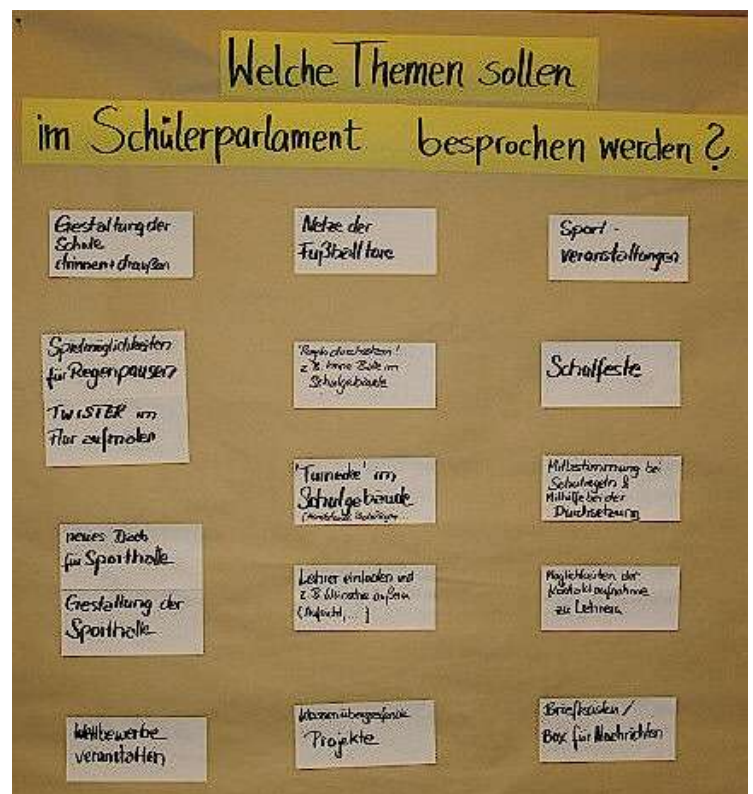 Welche Themen sollen
im Schülerparlament besprochen werden?
Gestaltung der
Schule
drinnen + draußen
Spielmöglichkeiten
für Regenpausen
TWISTER im
Flur aufmalen
neues Dach
für Sporthalle
Gestaltung der
Sporthalle
Wettbewerbe
veranstalten
Netze der
Fußballtore
durchsetzen!
z.B. keine Bälle im
Schulgebäude
'Turnecke' im
Schulgebäude
Lehrer einladen und
z.B. Wünsche äußern
(Aufsicht, ...)
Klassenübergreifende
Projekte
Sport-
veranstaltungen
Schulfeste
Mitbestimmung bei
Schulregeln &
Mithilfe bei der
Durchsetzung
Möglichkeiten der
Kontaktaufnahme
zu Lehrern
Briefkasten /
Box für Nachrichten